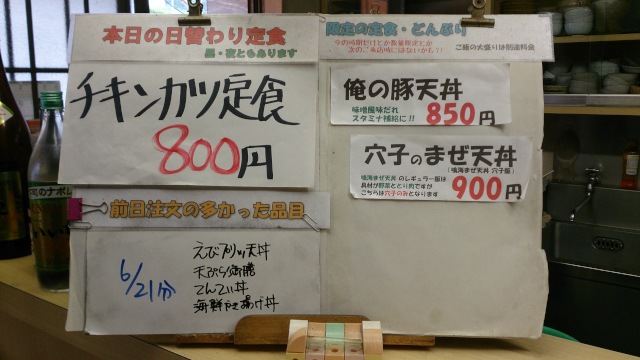 本日の日替わり定食
昼・夜ともあります
チキンカツ定食
800円
前日注文の多かった品目
6/21分
えびプリッツ天丼
天ぷら御膳
てんてい丼
海鮮かき揚げ丼
限定の定食・どんぶり
ご飯の大盛りは別途料金
俺の豚天丼
味噌風味だれ
スタミナ補給に!!
850円
穴子のまぜ天丼
(鳴海まぜ天丼 穴子版)
鳴海まぜ天丼 のレギュラー版は
具材が野菜ととり肉ですが
こちらは穴子のみとなります
900円